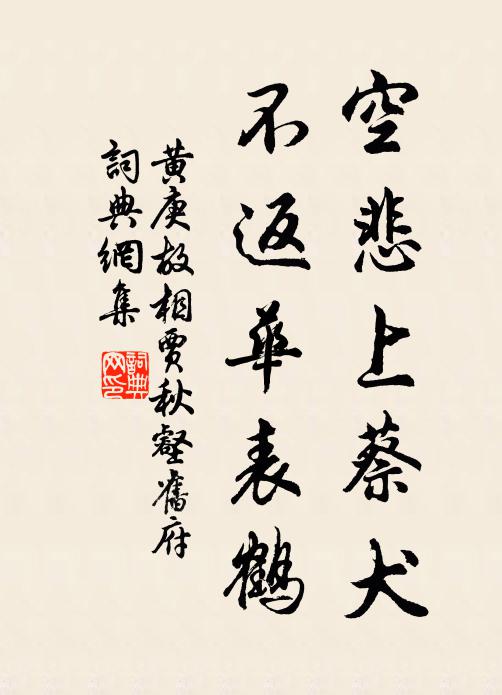 空悲上蔡犬
不返華表鶴
黄庚故相賈秋壑舊府
詞典網集
詞典网印